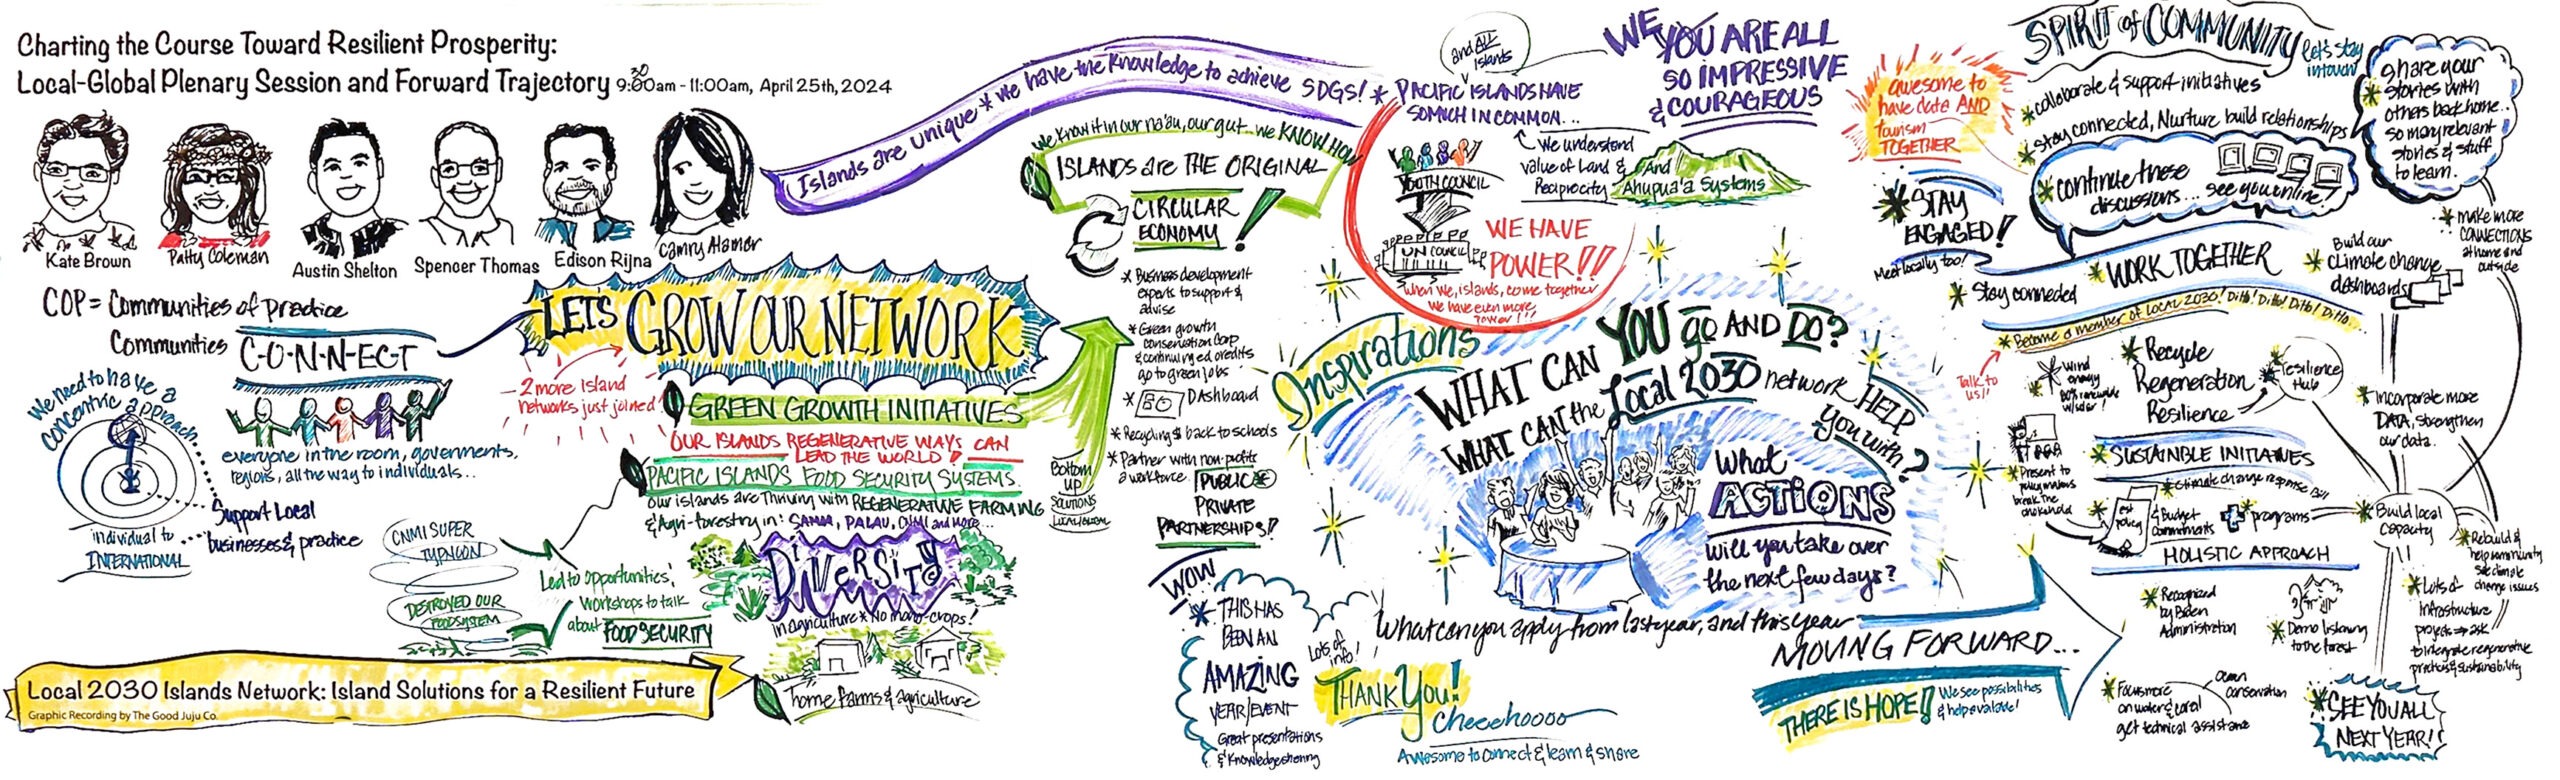 Charting the Course Toward Resilient Prosperity:
Local-Global Plenary Session and Forward Trajectory 9:30am - 11:00am, April 25th, 2024
Kate Brown
Patty Coleman
Austin Shelton
Spencer Thomas
Edison Rijna
Camry Alamer
COP = Communities of Practice
Communities
C-O-N-N-E-C-T
everyone in the room, goverments,
regions, all the way to individuals...
We need to have a
concentric approach
individual to
INTERNATIONAL
Support Local
businesses & practice
LET'S GROW OUR NETWORK
2 more island
networks just joined
GREEN GROWTH INITIATIVES
OUR ISLANDS REGENERATIVE WAYS CAN
LEAD THE WORLD!
PACIFIC ISLANDS FOOD SECURITY SYSTEMS.
our islands are Thriving with REGENERATIVE FARMING
& Agri-forestry in: SAMOA, PALAU, CNMI and more...
CNMI SUPER
TYPHOON
DESTROYED OUR
FOODSYSTEM
Led to opportunities,
workshops to talk
about FOOD SECURITY
DIVERSITY
in agriculture * No mono-crops!
home farms & agriculture
Local 2030 Islands Network: Island Solutions for a Resilient Future
Graphic Recording by The Good Juju Co.
Islands are unique * we have the knowledge to achieve SDGS! *
We know it in our na'au, our gut.. we KNOW HOW
ISLANDS are THE ORIGINAL
CIRCULAR
ECONOMY !
* Business development
experts to support &
advise
* Green growth
conservation corp
& continuing ed credits
go to green jobs
* Dashboard
* Recycling $ back to schools
* Partner with non-profits
& workforce
PUBLIC
PRIVATE
PARTNERSHIPS!!
Bottom
UP
SOLUTIONS
and ALL
islands
PACIFIC ISLANDS HAVE
SO MUCH IN COMMON...
We understand
value of Land &
Reciprocity
And
Ahupua'a Systems
YOUTH COUNCIL
UN COUNCIL
WE HAVE
POWER!!
When we, islands, come together
We have even more
Power!!!
WE YOU ARE ALL
SO IMPRESSIVE
& COURAGEOUS
Inspirations
WHAT CAN YOU go AND DO?
WHAT CAN the Local 2030 network HELP
you with?
What
ACTIONS
will you take over
the next few days?
WOW
* THIS HAS
BEEN AN
AMAZING
YEAR/EVENT
Great presentations
& Knowledge sharing
Lots of
info!
What can you apply from last year, and this year
THANK YOU!
Cheeehoooo
Awesome to connect & learn & share
MOVING FORWARD...
THERE IS HOPE!!
We see possibilities
awesome to
have data AND
Tourism
TOGETHER
SPIRIT of COMMUNITY
let's stay
in touch
* collaborate & support initiatives
* stay connected, Nurture build relationships
* continue these
discussions... see you online!
* share your
stories with
others back home..
so many relevant
stories & stuff
to learn.
* STAY
ENGAGED!
Meet locally too!
* Stay connected
* WORK TOGETHER
* Build our
climate change
dashboards
* make more
CONNECTIONS
at home and
outside
* Become a member of Local 2030! Ditto! Ditto! Ditto! Ditto...
Talk to
us!!
* Wind
energy
* Recycle
Regeneration
Resilience
* resilience
Hub
* Incorporate more
DATA, strengthen
our data.
* SUSTAINABLE INITIATIVES
* climate change response Bill
* Present to
policy makers
break the
* Test
policy
& Budget
commitments
programs
* Build local
capacity
HOLISTIC APPROACH
* Rebuild &
help community
see climate
change issues
* Recognized
by Biden
Administration
* Demo listening
to the forest
* Lots of
infrastructure
projects → ask
to integrate regenerative
practices & sustainability
* Focus more
on water & coral
get technical assistance
ocean
conservation
* SEE YOU ALL
NEXT YEAR!!